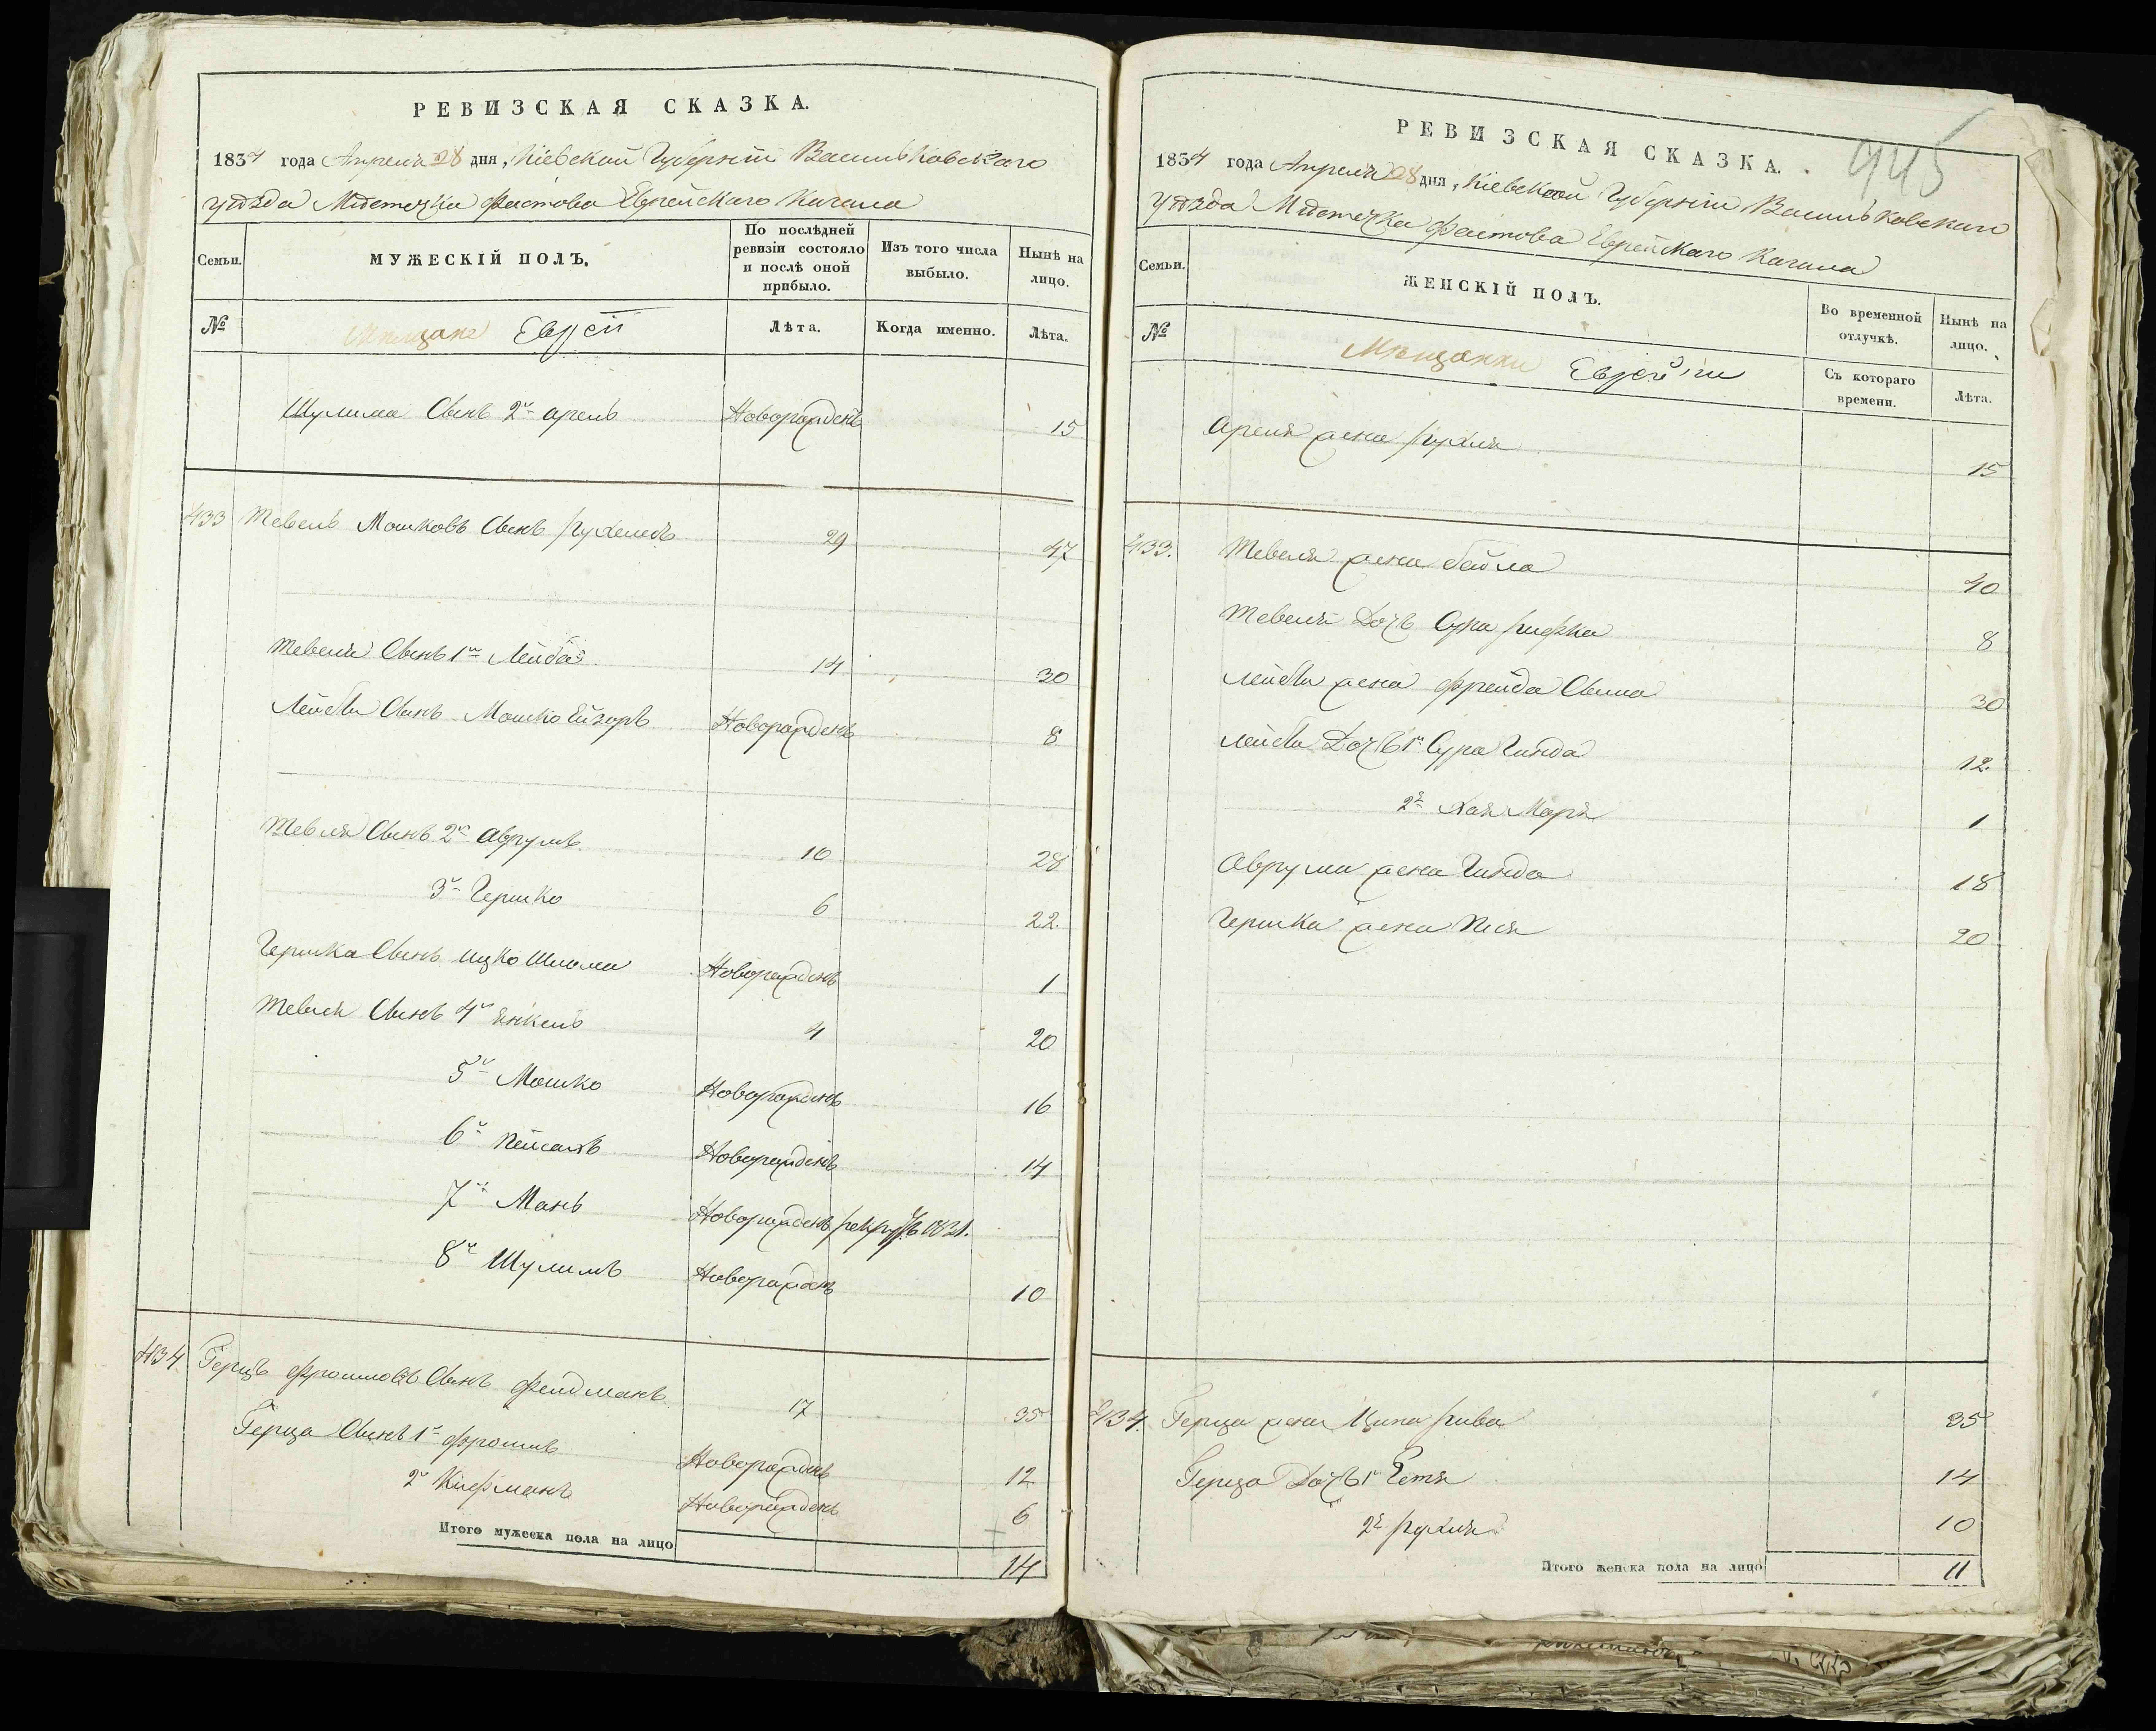 РЕВИЗСКАЯ СКАЗКА.
1834 года Апреля 28 дня, Кіевской Губерніи Васильковского
уѣзда Мѣстечка Фастова Еврейскаго Кагала
Семьи.
МУЖЕСКІЙ ПОЛЪ.
По послѣдней ревизіи состояло и послѣ оной прибыло.
Изъ того числа выбыло.
Нынѣ на лицо.
№
Мещане Евреи
Лѣта.
Когда именно.
Лѣта.
Шулима Сынъ 2й Арель Новорожденъ 15
433 Тевель Мошковъ Сынъ 29 47
Тевеля Сынъ 1й Лейба 14 30
Лейбы Сынъ Мошко Ейзоръ Новорожденъ 8
Тевеля Сынъ 2й Аврумъ 10 28
3й Гершко 6 22.
Гершка Сынъ Ицко Шлиома Новорожденъ 1
Тевеля Сынъ 4й Янкель 4 20
5й Мошко Новорожденъ 16
6й Пейсахъ Новорожденъ 14
7й Мань Новорожденъ рекрутъ 1831.
8й Шулимъ Новорожденъ 10
434 Герцъ Фроимовъ Сынъ Фелдманъ 17 35
Герца Сынъ 1й Фроимъ Новорожденъ 12
2й Кисрманъ Новорожденъ 6
Итого мужеска пола на лицо 14
945
РЕВИЗСКАЯ СКАЗКА.
1834 года Апреля 28 дня, Кіевской Губерніи Васильковскаго
уѣзда Мѣстечка Фастова Еврейскаго Кагала
Семьи.
ЖЕНСКІЙ ПОЛЪ.
Во временной отлучкѣ.
Нынѣ на лицо.
№
Мещанки Еврейки
Съ котораго времени.
Лѣта.
Ареля жена Рухля 15
433. Тевеля жена Бейла 40
Тевеля Дочь Сура Рифка 8
Лейбы жена Фрейда Сима 30
Лейбы Дочь 1я Сура Гинда 12.
2я Хая Маря 1
Аврума жена Гинда 18
Гершка жена Песя 20
434. Герца жена Ципа Рива 35
Герца Дочь 1я Гетя 14
2я Рухля 10
Итого женска пола на лицо 11